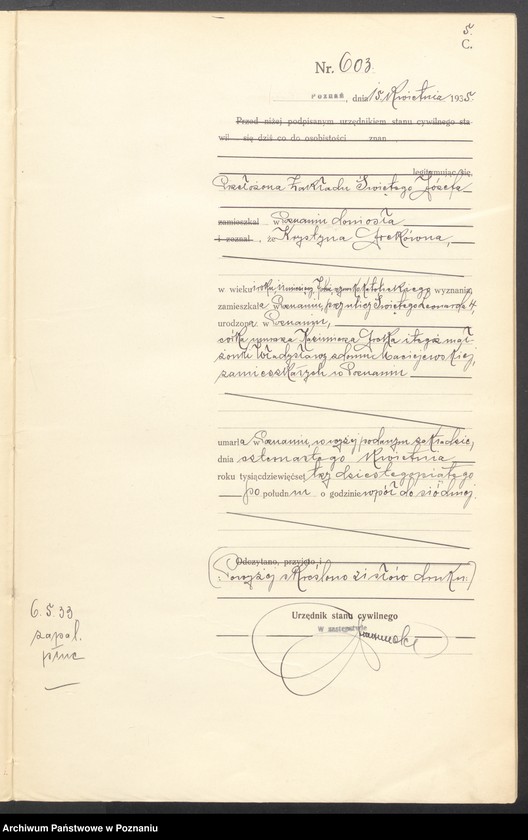 5.
C.
Nr. 603.
Poznań, dnia 15 Kwietnia 1935.
Przed niżej podpisanym urzędnikiem stanu cywilnego sta
wił się dziś co do osobistości znan
legitymując się
Przełożona Zakładu Świętego Józefa
zamieszkał w Poznaniu doniosła
i zeznał, że Krystyna Grekówna,
w wieku roku katolickiego wyznania,
zamieszkała w Poznaniu, przy ulicy Świętego Leonarda 4,
urodzona w Poznaniu,
córka Kazimierza i tegoż mał
żonki Władysławy z domu Maciejewskiej,
zamieszkałych w Poznaniu
umarła w Poznaniu, w wyżej podanym zakładzie,
dnia czternastego Kwietnia
roku tysiącdziewięćset trzydziestego piątego
po południu o godzinie wpół do siódmej.
Odczytano, przyjęto i
(Powyżej skreślono słów druku.)
Urzędnik stanu cywilnego
W zastępstwie
6. 5. 33
zapal.
płuc
Archiwum Państwowe w Poznaniu